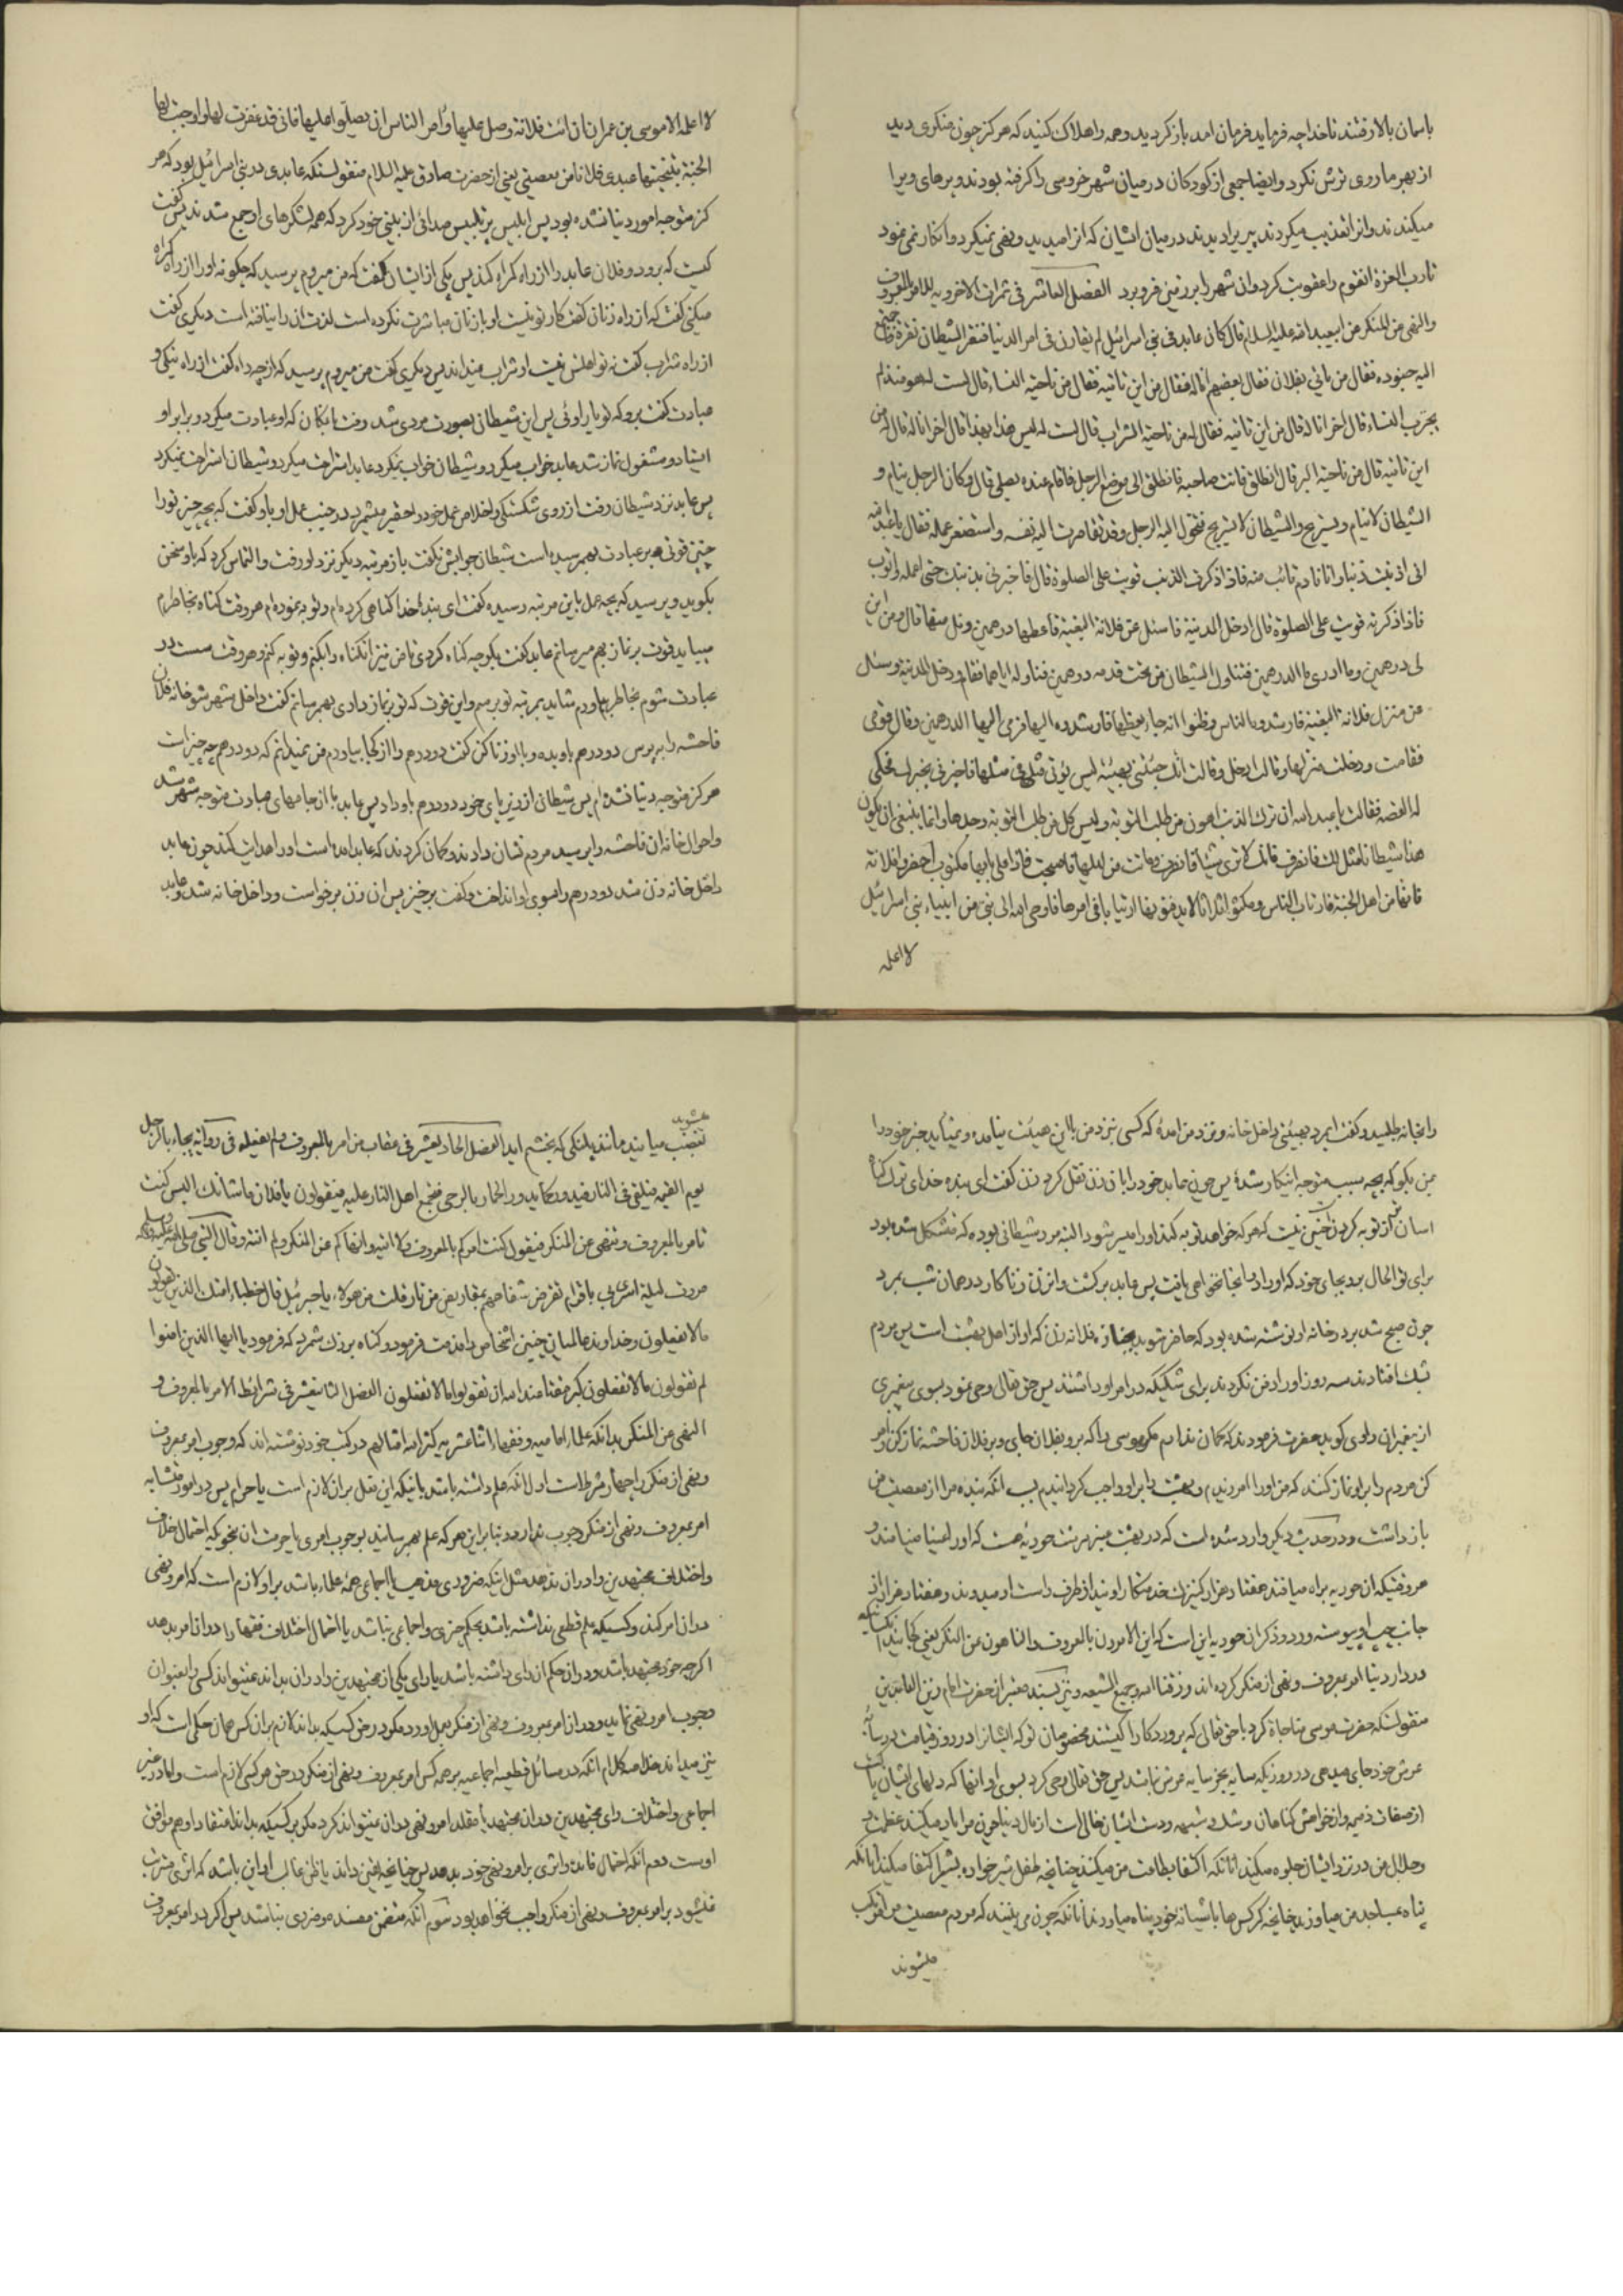 باسمان بالا رفتند تا خدا چه فرماید فرمان امد باز کردید و همه را هلاک کنید که هرکز چون منکری دید
از بهر ما روی ترش نکرد و ایضا جمعی از کودکان در میان شهر خروسی را کرفته بودند و پرهای ویرا
میکندند و انرا تعذیب میکردند پیریرا دیدند در میان ایشان که انرا میدید و نهی نمیکرد و انکار نمی نمود
تا رب العزة انقوم را عقوبت کرد و ان شهر را بر زمین فرو برد الفصل العاشر فی ثمرات الاخرویه للامر بالمعروف
والنهی عن المنکر عن ابیعبد الله علیه السلام قال کان عابد فی بنی اسرائیل لم یقارن فی امر الدنیا فنخر الشیطان نخرة فاجتمع
الیه جنوده فقال من یاتی بفلان فقال بعضهم انا له فقال من این تاتیه فقال من ناحیة النساء قال لست له هو منذ لم
یجرب النساء قال اخر انا له قال من این تاتیه فقال له من ناحیة الشراب قال لست له لیس هذا بهذا قال اخر انا له قال من
این تاتیه قال من ناحیة البر قال انطلق فانت صاحبه فانطلق الی موضع الرجل فاقام عنده یصلی قال وکان الرجل ینام و
الشیطان لا ینام ویستریح والشیطان لا یستریح فتحول الیه الرجل وقد تقاصرت الیه نفسه واستصغر عمله فقال یا عبد الله
انی اذنبت ذنبا وانا نادم تائب منه فاذا ذکرت الذنب قویت علی الصلوة قال فاخبرنی بذنبک حتی اعمله واتوب
فاذا ذکرته قویت علی الصلوة قال ادخل المدینة فاسئل عن فلانة البغیة فاعطها درهمین ونل منها قال ومن این
لی درهمین وما ادری ما الدرهمین فتناول الشیطان من تحت قدمه درهمین فناوله ایاهما فقام ودخل المدینة وسئال
عن منزل فلانة البغیة فارشده الناس وظنوا انه جاء یعظها فارشدوه الیها فرمی الیها الدرهمین وقال قومی
فقامت ودخلت منزلها وقالت ادخل وقالت انک جئتنی بهیئة لیس یؤتی مثلی فی مثلها فاخبرنی بخبرک فحکی
له القصه فقالت یا عبد الله ان ترک الذنب اهون من طلب التوبة ولیس کل من طلب التوبة وجدها وانما ینبغی ان یکون
هذا شیطانا مثل لک فانصرف فانک لا تری شیئا فانصرف وماتت من لیلتها فاصبحت فاذا علی بابها مکتوب احضروا فلانة
فانها من اهل الجنة فارتاب الناس ومکثوا ثلاثا لا یدفنونها ارتیابا فی امرها فاوحی الله الی نبی من انبیاء بنی اسرائیل
لا اعلمه
لا اعلمه الا موسی بن عمران ان ائت فلانة وصل علیها و امر الناس ان یصلوا علیها فانی قد غفرت لها و اوجبت لها
الجنة بتثبیتها عبدی فلانا من معصیتی یعنی از حضرت صادق علیه السلام منقولستکه عابدی در بنی اسرائیل بود که هر
کز متوجه امور دنیا نشده بود پس ابلیس پر تلبیس صدائی از بینی خود کرد که همه لشکرهای او جمع شدند پس کفت
کیست که برود و فلان عابد را از راه کمراه کند پس یکی از ایشان کفت که من میروم پرسید که چکونه او را از راه کمراه
میکنی کفت که از راه زنان کفت کار تو نیست او با زنان مباشرت نکرده است لذت ان را نیافته است دیکری کفت
از راه شراب کفت نه تو اهلش نیست او شراب میداند پس دیکری کفت من میروم پرسید که از چه راه کفت از راه نیکی و
عبادت کفت برو که تو یار اوئی پس این شیطان بصورت مردی شد و رفت بامکان که او عبادت میکرد و برابر او
ایستاد و مشغول نماز شد عابد خواب میکرد و شیطان خواب نمیکرد عابد استراحت میکرد و شیطان استراحت نمیکرد
پس عابد نزد شیطان رفت از روی شکستکی و اخلاص عمل خود را حقیر میشمرد در جنب عمل او باو کفت که بچه چیز تو را
چنین قوتی بر عبادت بهم رسیده است شیطان جوابش نکفت باز مرتبه دیکر نزد او رفت و التماس کرد که باو سخن
بکوید و پرسید که بچه عمل باین مرتبه رسیده کفت ای بنده خدا کناهی کرده ام و توبه نموده ام هر وقت کناه بخاطرم
میباید قوت بر نماز بهم میرسانم عابد کفت بکو چه کناه کردی تا من نیز انکناه را بکنم و توبه کنم و هر وقت سست در
عبادت شوم بخاطر بیاورم شاید بمرتبه تو برسم و این قوت که تو بر نماز داری بهم رسانم کفت داخل شهر شو خانه فلان
فاحشه را بپرس دو درهم باو بده و با او زنا کن کفت دو درهم را از کجا بیاورم من نمیدانم که دو درهم چه چیز است
هرکز متوجه دنیا نشده ام پس شیطان از زیر پای خود دو درهم باو داد پس عابد با ان جامهای عبادت متوجه شهر شد
و احوال خانه ان فاحشه را پرسید مردم نشان دادند و کمان کردند که عابد امده است او را هدایت کند چون عابد
داخل خانه زن شد دو درهم را بسوی او انداخت و کفت برخیز پس ان زن برخواست و داخل خانه شد و عابد
را بخانه طلبید و کفت ایمرد بهیئتی داخل خانه و نزد من امدهٔ که کسی نزد من باین هیئت نیامده و نمیاید خبر خود را
بمن بکو که بچه سبب متوجه اینکار شدهٔ پس چون عابد خود را بان زن نقل کرد زن کفت ای بنده خدای ترک کناه
اسان تر از توبه کردن چنین نیست که هر که خواهد توبه کند او را میسر شود البته مرد شیطانی بوده که متشکل شده بود
برای تو الحال برو بجای خود که او را در انجا نخواهی یافت پس عابد برکشت و ان زن زناکار در همان شب بمرد
چون صبح شد بر در خانه او نوشته شده بود که حاضر شوید بجنازه فلانه زن که او از اهل بهشت است پس مردم
بشک افتادند سه روز او را دفن نکردند برای شکیکه در امر او داشتند پس حق تعالی وحی نمود بسوی پیغمبری
از پیغمبران راوی کوید حضرت فرمودند که کمان ندارم مکر موسی را که برو بفلان جای و بر فلان فاحشه نماز کن و امر
کن مردم را بر او نماز کنند که من او را امرزیدم و بهشت را بر او واجب کردانیدم بسبب انکه بنده مرا از معصیت من
باز داشت و در حدیث دیکر وارد شده است که در بهشت عنبر سرشت حوریه هست که او را عینا مینامند و
هر وقتیکه ان حوریه براه میافتد هفتاد هزار کنیزک خدمتکار او نیز از طرف راست او میروند و هفتاد هزار از
جانب چپ او پیوسته ورد و ذکر ان حوریه این است که این الامرون بالمعروف و الناهون عن المنکر یعنی کجایند انکسانیکه
در دار دنیا امر بمعروف و نهی از منکر کرده اند و رزقنا الله وجمیع الشیعه و نیز بسند معتبر از حضرت امام زین العابدین
منقولستکه حضرت موسی مناجاة کرد با حق تعالی که پروردکارا کیستند مخصوصان تو که ایشانرا در روز قیامت در سایه
عرش خود جای میدهی در روزیکه سایه بجز سایه عرش نباشد پس حق تعالی وحی کرد بسوی او انها که دلهای ایشان پاک است
از صفات ذمیمه و از خواهش کناهان و شک و شبهه و دست ایشان خالی است از مال دنیا چون مرا یاد میکنند عظمت
و جلال من در نزد ایشان جلوه میکند انانکه اکتفا بطاعت من میکنند چنانچه طفل شیر خواره بشیر اکتفا میکند انانکه
پناه بمساجد من میاورند چنانچه کرکس ها باشیانه خود پناه میاورند انانکه چون می بینند که مردم معصیت من مرتکب
میشوند
میشوند
تغضب میایند مانند پلنکی که بخشم اید الفصل الحاد یعشر فی عقاب من امر بالمعروف ولم یفعله فی روایة یجاء بالرجل
یوم القیمه فیلقی فی النار فیدور کما یدور الحمار بالرحی فیجمع اهل النار علیه فیقولون یا فلان ما شانک الیس کنت
تامر بالمعروف و تنهی عن المنکر فیقول کنت امرکم بالمعروف ولا اتیه و انهاکم عن المنکر ولم انته وقال النبی صلی الله علیه واله وسلم
مررت لیلة اسری بی باقوام تقرض شفاههم بمقاریض من نار فقلت من هولاء یا جبرئیل قال خطباء امتک الذین یقولون
مالا یفعلون و خداوند عالمیان چنین اشخاص را مذمت فرموده و کناه بزرک شمرده که فرموده یا ایها الذین امنوا
لم تقولون ما لا تفعلون کبر مقتا عند الله ان تقولوا مالا تفعلون الفصل الثانیعشر فی شرائط الامر بالمعروف و
النهی عن المنکر بدانکه علماء امامیه و فقهاء اثنا عشریه کثر الله امثالهم در کتب خود نوشته اند که وجوب امر بمعروف
و نهی از منکر را چهار شرط است اول انکه علم داشته باشد باینکه این فعل بر ان لازم است یا حرام پس در امور متشابه
امر بمعروف و نهی از منکر وجوب ندارد و بنا بر این هر که علم بهم رسانید بوجوب امری یا حرمت ان بنحویکه احتمال خلاف
و اختلاف مجتهدین را در ان ندهد مثل اینکه ضروری مذهب یا اجماعی همهٔ علماء باشد بر او لازم است که امر و نهی
در ان امر کند و کسیکه علم قطعی نداشته باشد بحکم چیزی و اجماعی نباشد یا احتمال اختلاف فقها را در ان امر بدهد
اکرچه خود مجتهد باشد و در ان حکم ان رای داشته باشد یا رای یکی از مجتهدین را در ان بداند نمیتواند کسی را بعنوان
وجوب امر و نهی نماید و در ان امر بمعروف و نهی از منکر بعمل اورد مکر در حق کسیکه بداند لازم بر ان کس همان حکمی است که او
نیز میداند خلاصه کلام انکه در مسائل قطعیه اجماعیه بر همه کس امر بمعروف و نهی از منکر در حق هر کسی لازم است و اما در غیر
اجماعی و اختلاف رای مجتهدین در ان مجتهد یا مقلد امر و نهی در ان نمیتواند کرد مکر بر کسیکه بداند اعتقاد او هم موافق
اوست دوم انکه احتمال فائده و اثری بر امر و نهی خود بدهد پس چنانچه یقین داند یا ظن غالب او این باشد که اثری مترتب
نمیشود بر امر بمعروف و نهی از منکر واجب نخواهد بود سوم انکه متضمن مفسده و ضرری نباشد پس اکر در امر بمعروف